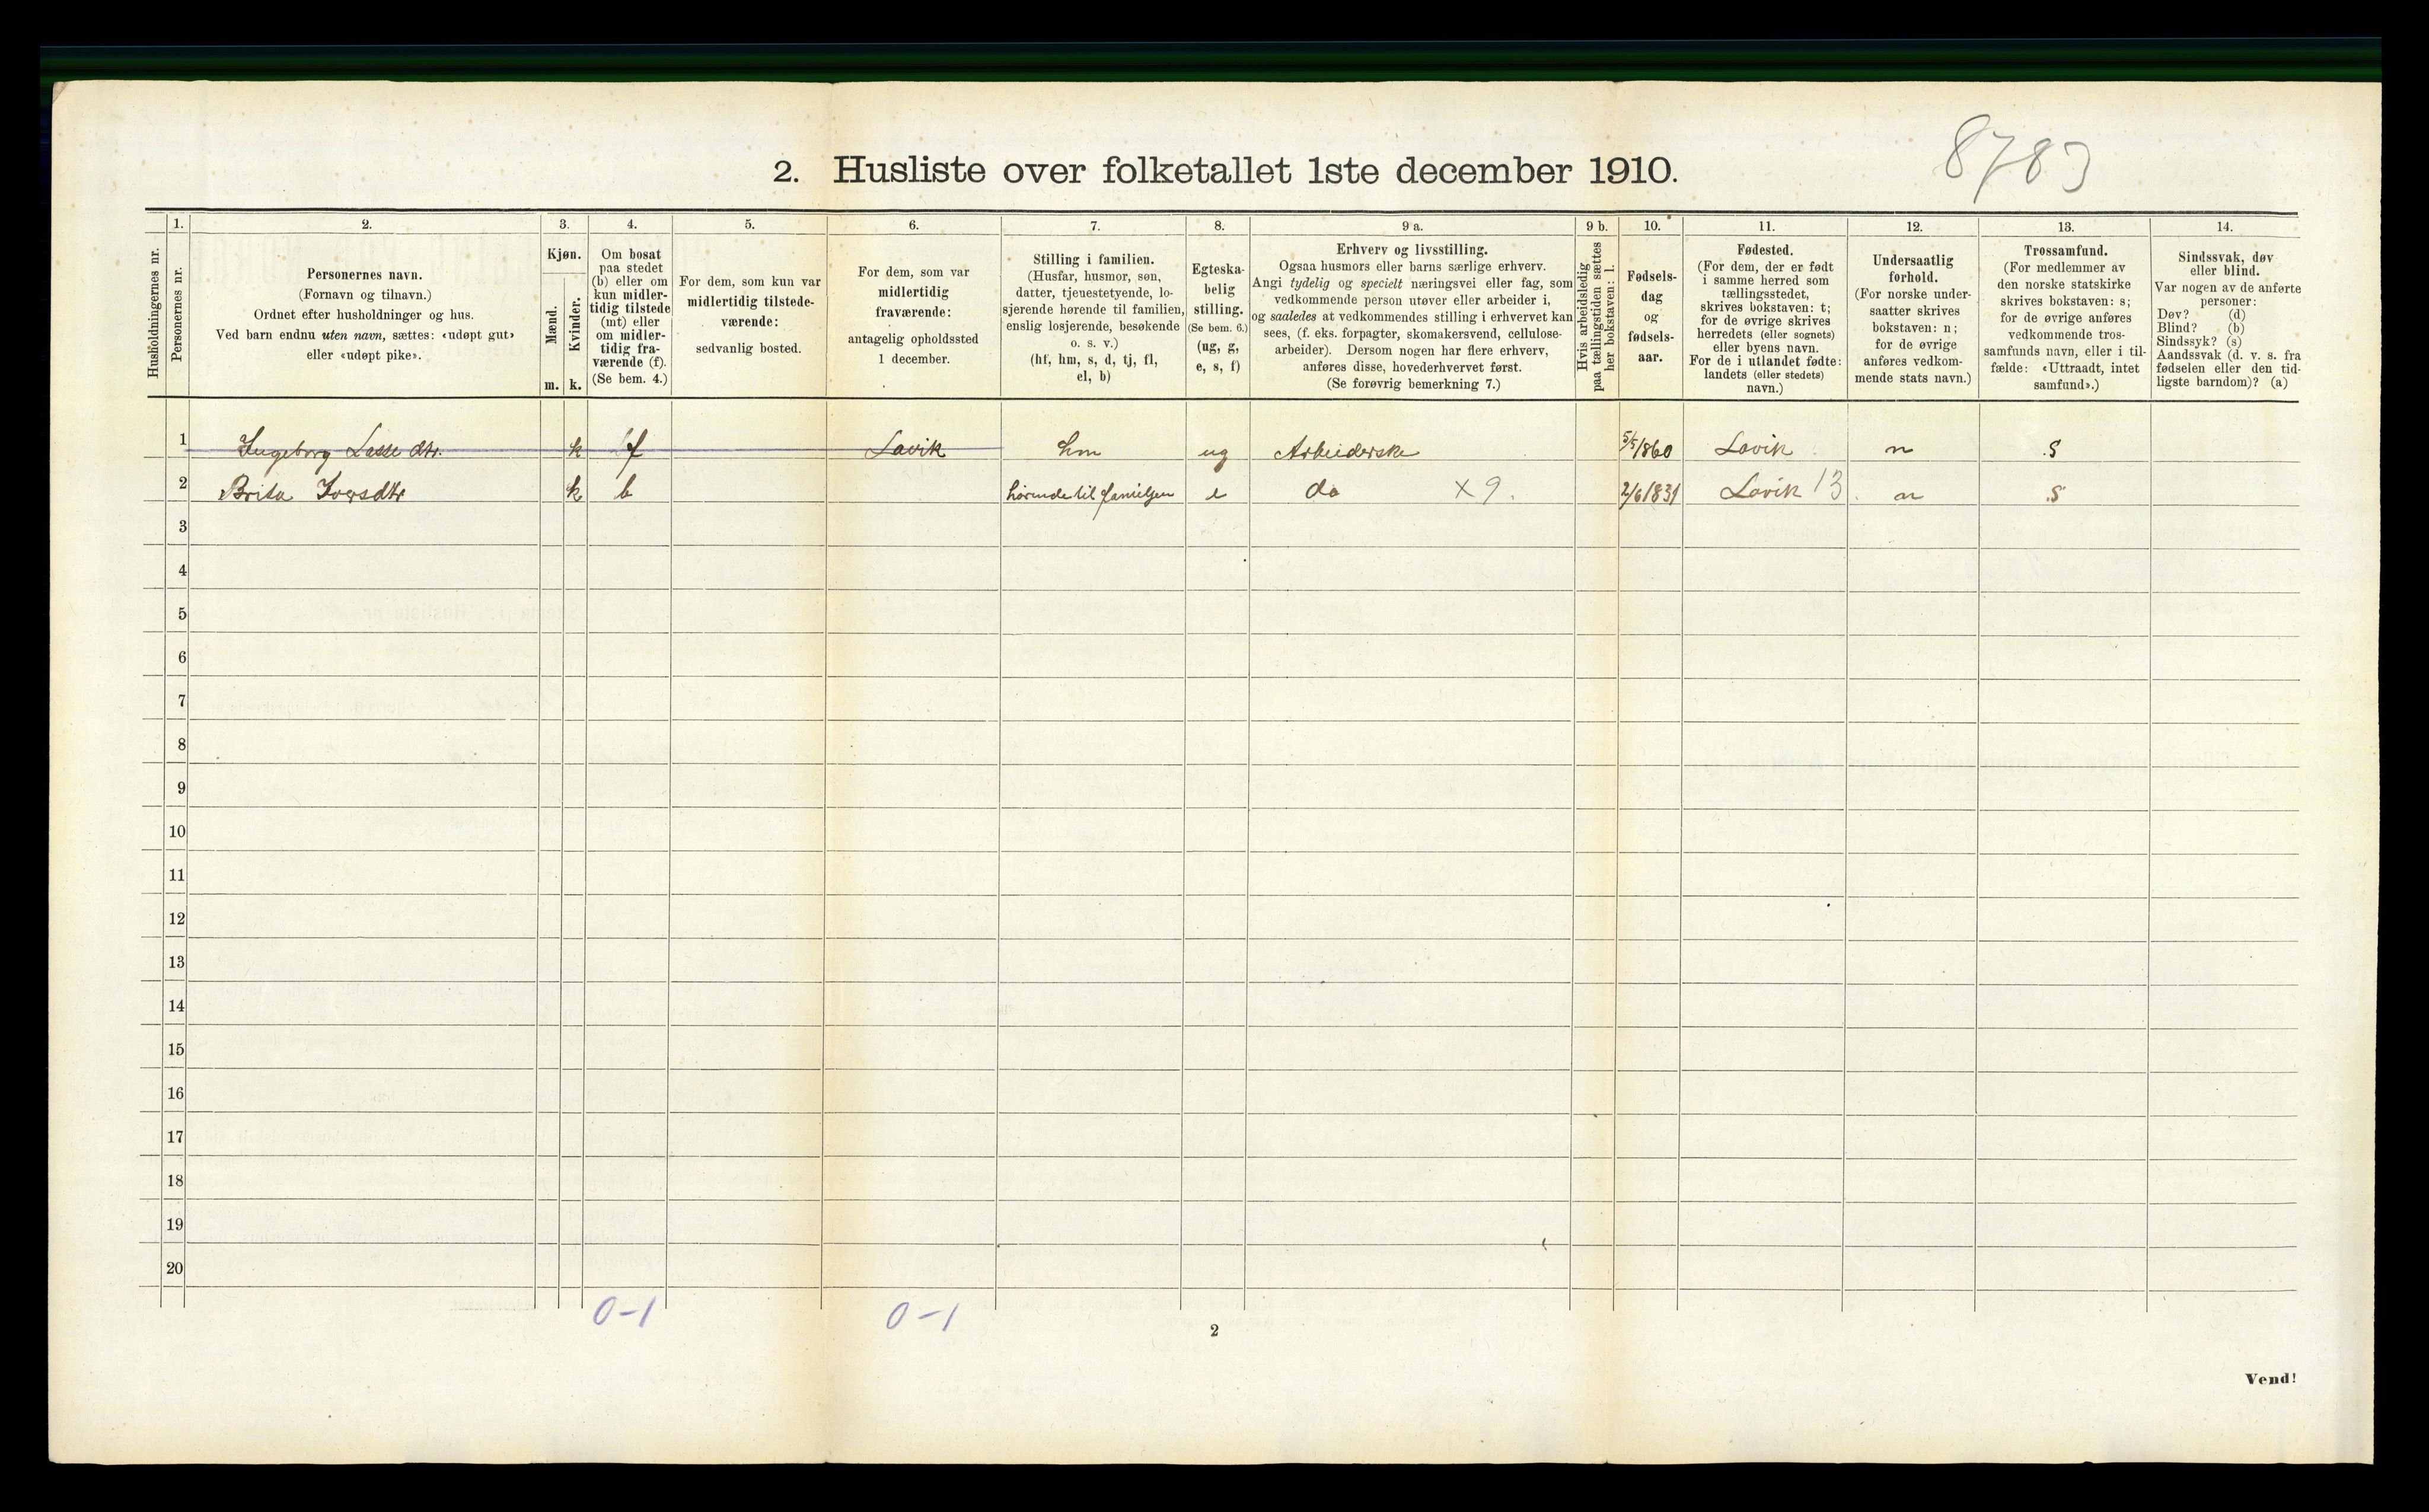 8783
2. Husliste over folketallet 1ste december 1910.
Husholdningernes nr.
1.
Personernes nr.
2.
Personernes navn.
(Fornavn og tilnavn.)
Ordnet efter husholdninger og hus.
Ved barn endnu uten navn, sættes: «udøpt gut»
eller «udøpt pike».
3.
Kjøn.
Mænd.
Kvinder.
m. k.
4.
Om bosat
paa stedet
(b) eller om
kun midler-
tidig tilstede
(mt) eller
om midler-
tidig fra-
værende (f).
(Se bem. 4.)
5.
For dem, som kun var
midlertidig tilstede-
værende:
sedvanlig bosted.
6.
For dem, som var
midlertidig
fraværende:
antagelig opholdssted
1 december.
7.
Stilling i familien.
(Husfar, husmor, søn,
datter, tjenestetyende, lo-
sjerende hørende til familien,
enslig losjerende, besøkende
o. s. v.)
(hf, hm, s, d, tj, fl,
el, b)
8.
Egteska-
belig
stilling.
(Se bem. 6.)
(ug, g,
e, s, f)
9 a.
Erhverv og livsstilling.
Ogsaa husmors eller barns særlige erhverv.
Angi tydelig og specielt næringsvei eller fag, som
vedkommende person utøver eller arbeider i,
og saaledes at vedkommendes stilling i erhvervet kan
sees, (f. eks. forpagter, skomakersvend, cellulose-
arbeider). Dersom nogen har flere erhverv,
anføres disse, hovederhvervet først.
(Se forøvrig bemerkning 7.)
9 b.
Hvis arbeidsledig
paa tællingstiden sættes
her bokstaven: l.
10.
Fødsels-
dag
og
fødsels-
aar.
11.
Fødested.
(For dem, der er født
i samme herred som
tællingsstedet,
skrives bokstaven: t;
for de øvrige skrives
herredets (eller sognets)
eller byens navn.
For de i utlandet fødte:
landets (eller stedets)
navn.)
12.
Undersaatlig
forhold.
(For norske under-
saatter skrives
bokstaven: n;
for de øvrige
anføres vedkom-
mende stats navn.)
13.
Trossamfund.
(For medlemmer av
den norske statskirke
skrives bokstaven: s;
for de øvrige anføres
vedkommende tros-
samfunds navn, eller i til-
fælde: «Uttraadt, intet
samfund».)
14.
Sindssvak, døv
eller blind.
Var nogen av de anførte
personer:
Døv? (d)
Blind? (b)
Sindssyk? (s)
Aandssvak (d. v. s. fra
fødselen eller den tid-
ligste barndom)? (a)
1 Ingeborg Lasse dtr. k f Lavik hm ug Arbeiderske 5/5 1860 Lavik n S
2 Brita Iversdtr k b hørende til familjen e do X 9. 2/6 1831 Lavik 13 n S
3
4
5
6
7
8
9
10
11
12
13
14
15
16
17
18
19
20
0-1 0-1
2
Vend!